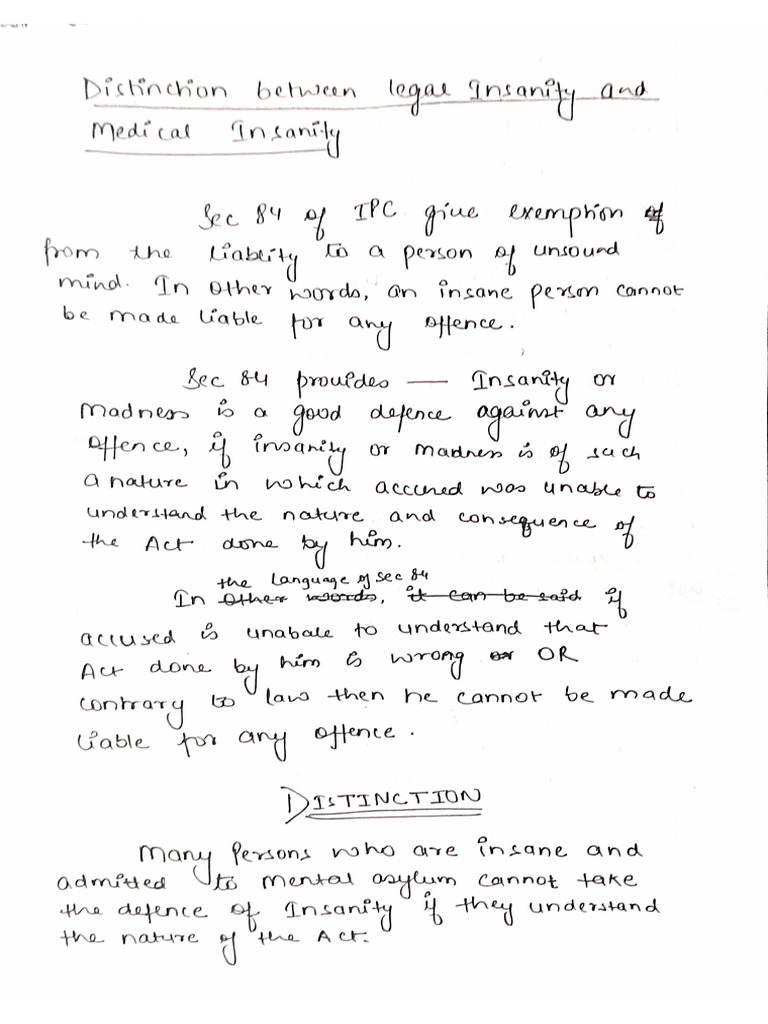 Distinction between legal Insanity and
Medical Insanity
Sec 84 of IPC give exemption of
from the liability to a person of unsound
mind. In other words, an insane person cannot
be made liable for any offence.
Sec 84 provides — Insanity or
Madness is a good defence against any
offence, if insanity or madness is of such
a nature in which accused was unable to
understand the nature and consequence of
the Act done by him.
the language of sec 84
In other words, it can be said if
accused is unabale to understand that
Act done by him is wrong or OR
contrary to law then he cannot be made
liable for any offence.
DISTINCTION
Many Persons who are insane and
admitted to mental asylum cannot take
the defence of Insanity if they understand
the nature of the Act.